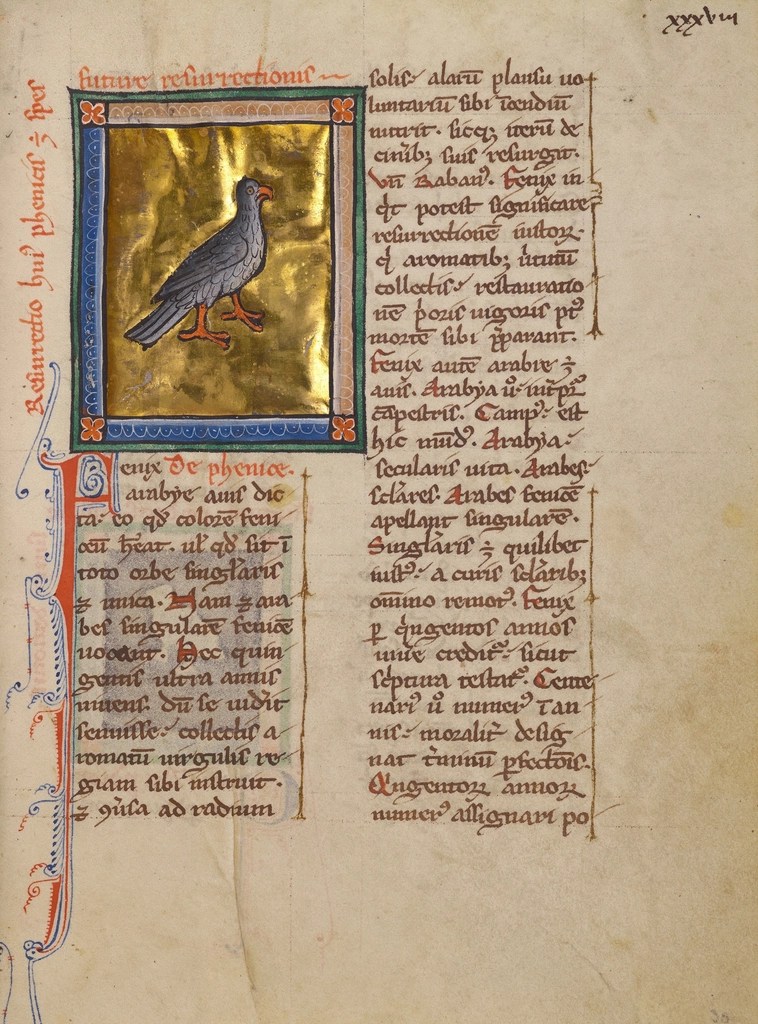 xxxviii
future resurrectionis
Resurrectio huiꝰ phenicis ÷ spes
Fenix De phenice.
arabye auis dic
ta. eo qđ colorē feni
ceū habeat. ul' qđ sit ī
toto orbe singl'aris
⁊ unica. Nam ⁊ ara
bes singularē fenicē
uocant. Hec quin
gentis ultra annis
uiuens. dū se uiderit
senuisse. collectis a
romatū uirgulis re
giam sibi instruit.
⁊ ꝯuersa ad radium
solis. alarū plausu uo
luntariū sibi īcendiū
nutrit. sicqꝫ iterū de
cineribꝫ suis resurgit.
Rabanꝰ. Fenix in
potest significare
resurrectionē iustoꝝ.
qi aromatibꝫ uirtutū
collectis. restauratio
nē prioris uigoris pꝰt
mortē sibi p̄parant.
Fenix autē arabie ÷
auis. Arabya ū. int'pr̄
capestris. Campꝰ. est
hic mūdꝰ. Arabya.
secularis uita. Arabes.
sc'lares. Arabes fenicē
apellant singularē.
Singl'aris ÷ quilibet
iustꝰ. a curis sc'laribꝫ
omnino remotꝰ. Fenix
ꝑ q'ngentos annos
uiue credit'. sicut
sc'ptura testat'. Cente
nariꝰ ū numerꝰ an
nis. moralit' desig
nat t'minū ꝑfectiōis.
Q'ngentoꝝ annoꝝ
numerꝰ assignari po